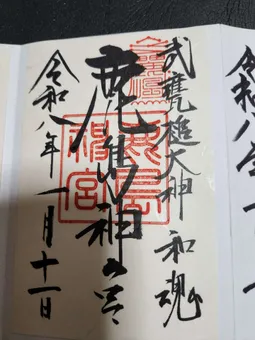 令和八年一
武甕槌大神 和魂
鹿島神宮
鹿島
神宮
令和八年一月十一日